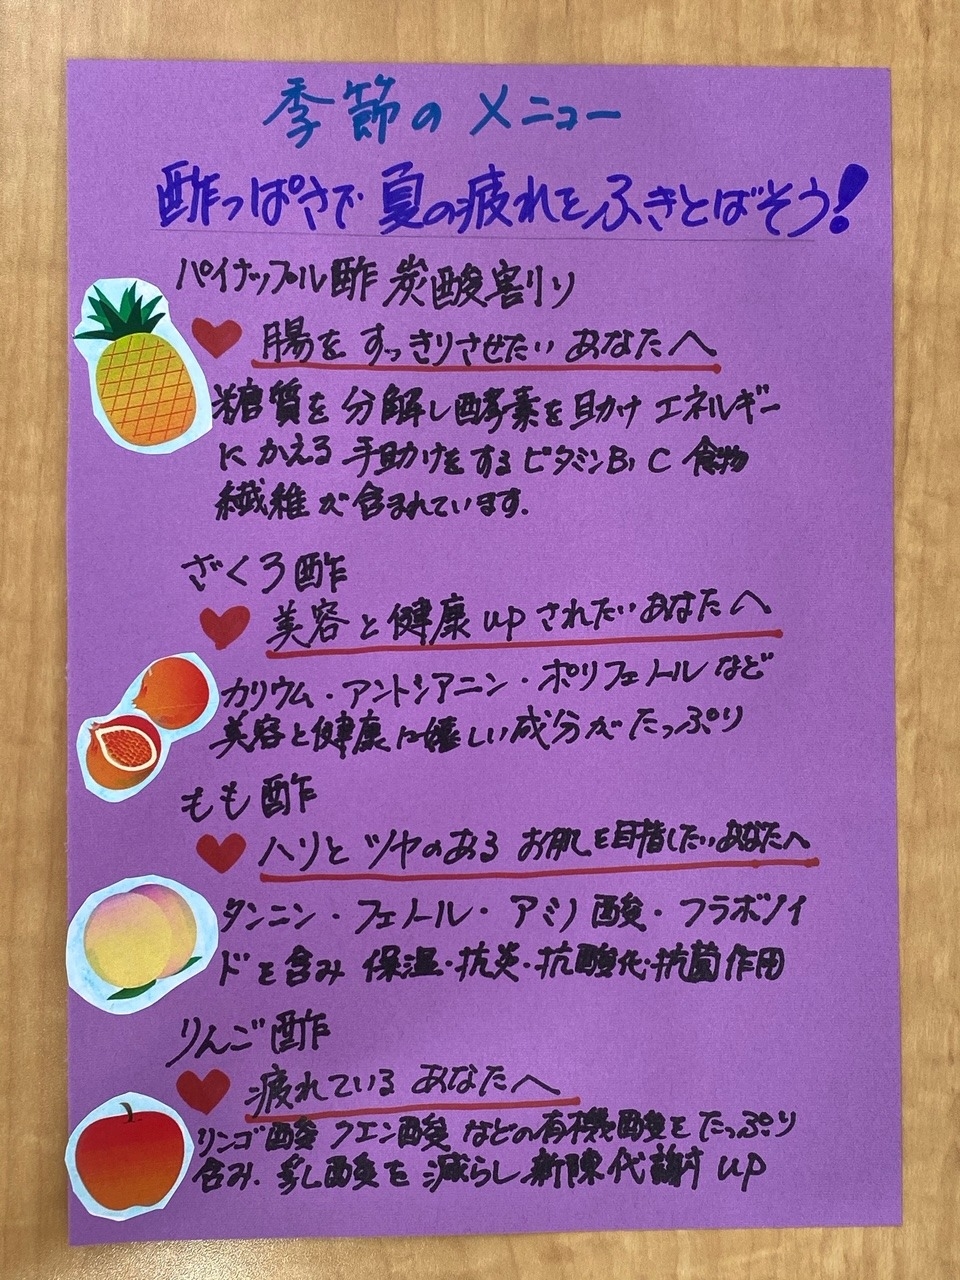 季節のメニュー
酢っぱさで夏の疲れをふきとばそう!
パイナップル酢 炭酸割り
腸をすっきりさせたいあなたへ
糖質を分解し酵素を助け エネルギー
にかえる手助けをするビタミンB₁ C 食物
繊維が含まれています.
ざくろ酢
美容と健康upされたいあなたへ
カリウム・アントシアニン・ポリフェノールなど
美容と健康に嬉しい成分がたっぷり
もも酢
ハリとツヤのあるお肌を目指したいあなたへ
タンニン・フェノール・アミノ酸・フラボノイ
ドを含み 保湿・抗炎・抗酸化・抗菌作用
りんご酢
疲れているあなたへ
リンゴ酸 クエン酸などの有機酸をたっぷり
含み、乳酸を減らし新陳代謝up